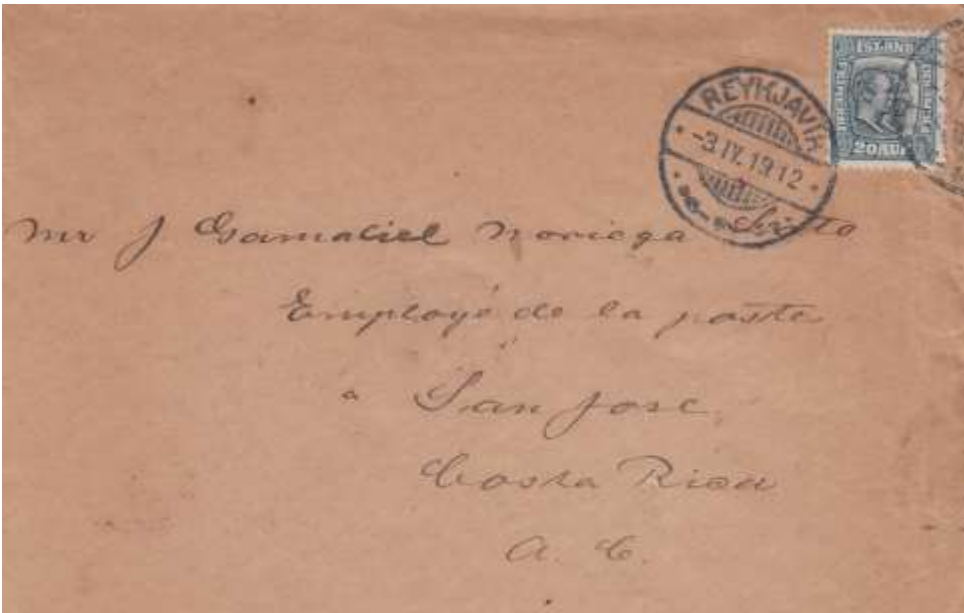 ÍSLAND
20 AUR
REYKJAVÍK
-3.IX.1912.
Mr J Gamaliel Noriega
Employé de la poste
a San Jose
Costa Rica
A. C.